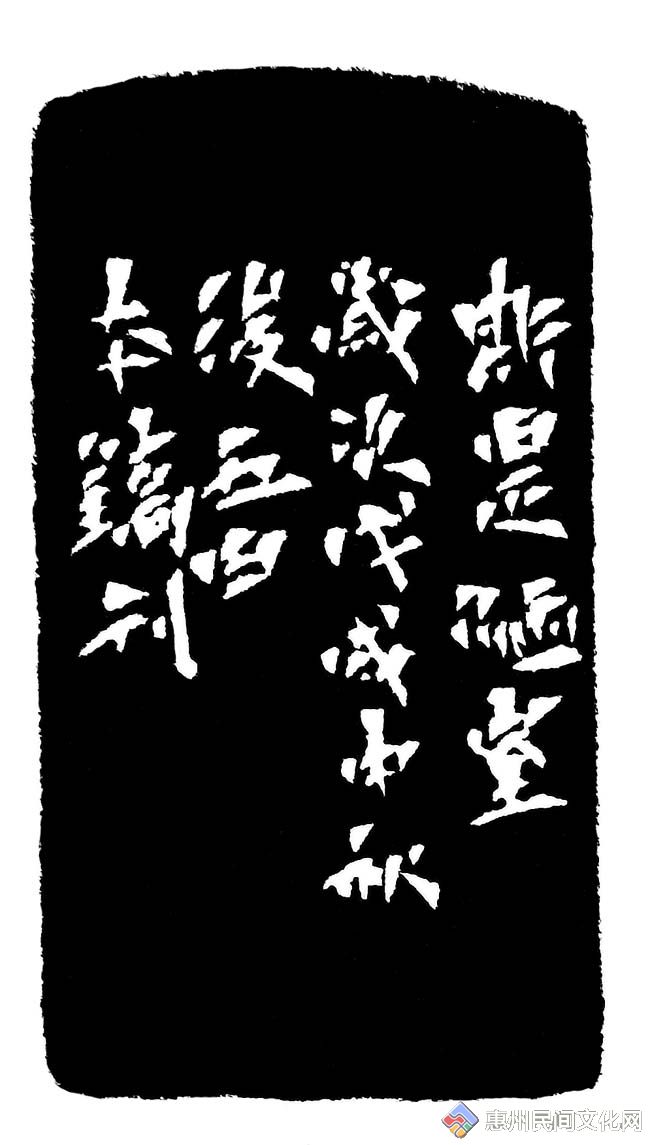 斯是陋堂
歲次戊戌中秋
後五日
刊
惠州民间文化网